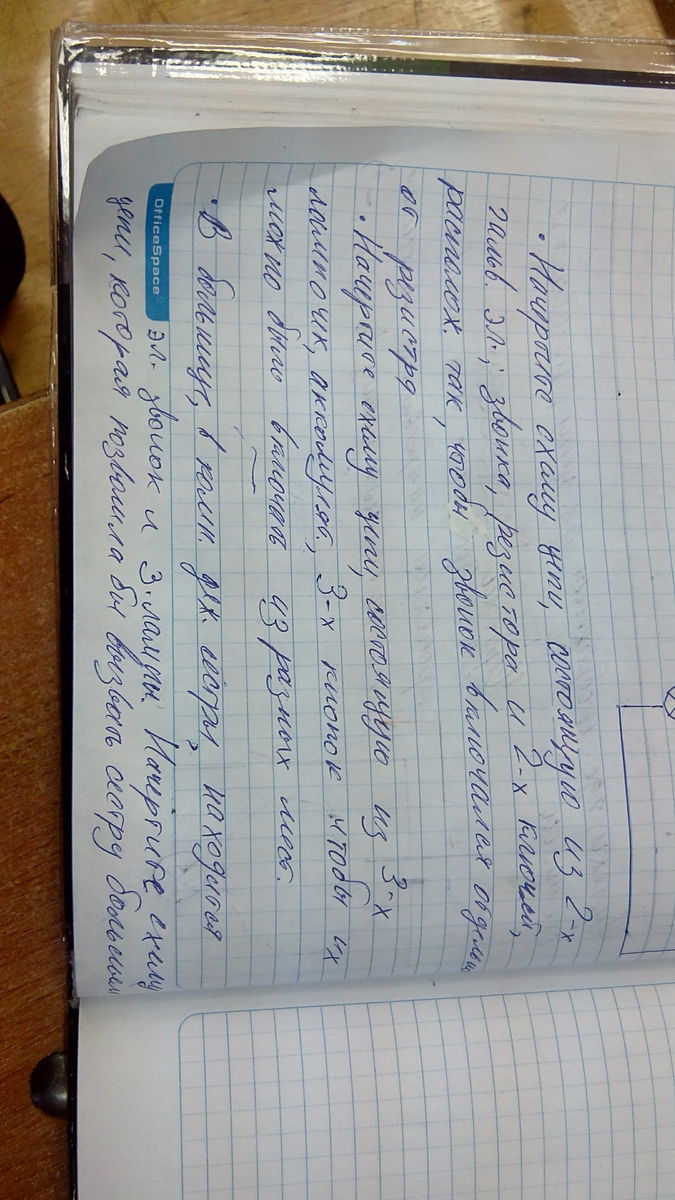 • Начертите схему цепи, состоящую из 2-х
гальв. эл., звонка, резистора и 2-х ключей,
располож. так, чтобы звонок включался отдельно
от резистра
• Начертите схему цепи, состоящую из 3-х
лампочек, аккумулят, 3-х кнопок чтобы их
можно было включать из разных мест.
• В больнице, в комн. деж. сестры, находится
OfficeSpace эл. звонок и 3 лампы. Начертите схему
цепи, которая позволила бы вызвать сестру больным